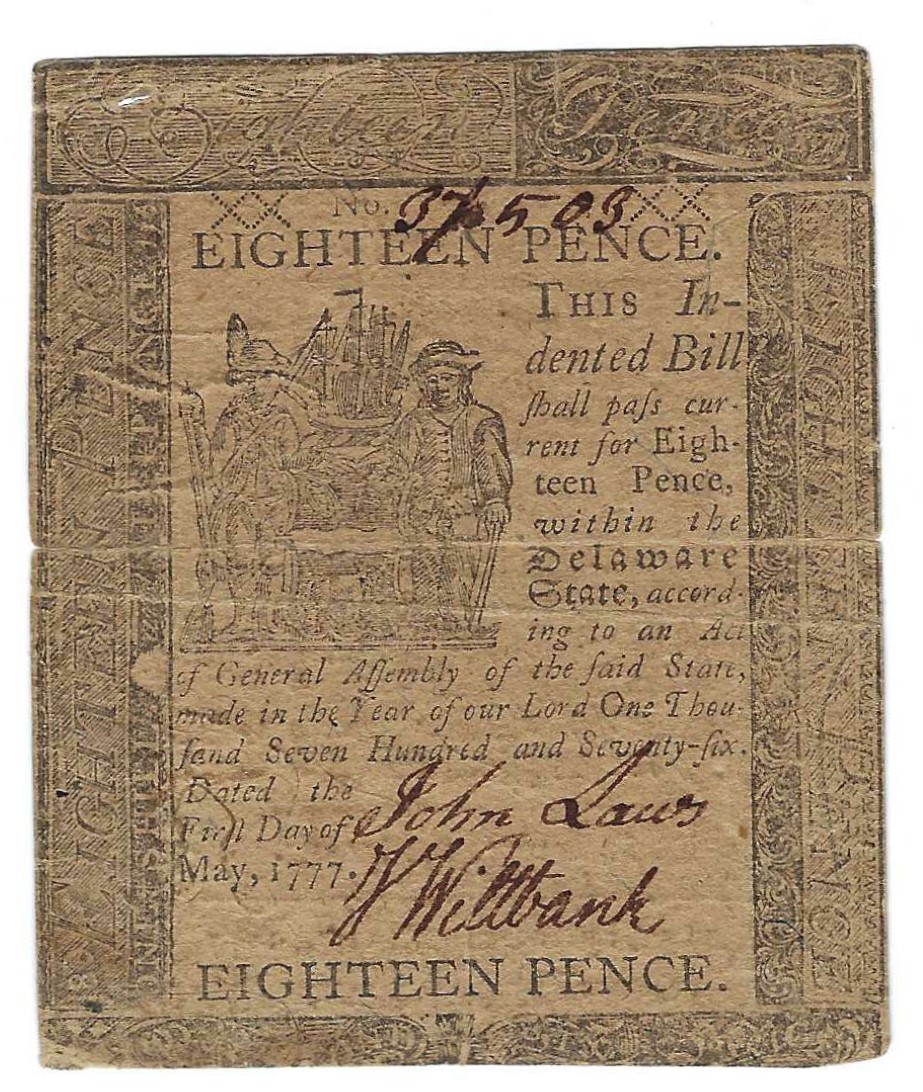 Eighteen Pence
No. 37503
EIGHTEEN PENCE.
THIS In-
dented Bill
ſhall paſs cur-
rent for Eigh-
teen Pence,
within the
Delaware
State, accord-
ing to an Act
of General Aſſembly of the ſaid State,
made in the Year of our Lord One Thou-
ſand Seven Hundred and Seventy-ſix.
Dated the
Firſt Day of
May, 1777.
John Laws
J Wiltbank
EIGHTEEN PENCE.
EIGHTEEN PENCE
EIGHTEEN PENCE